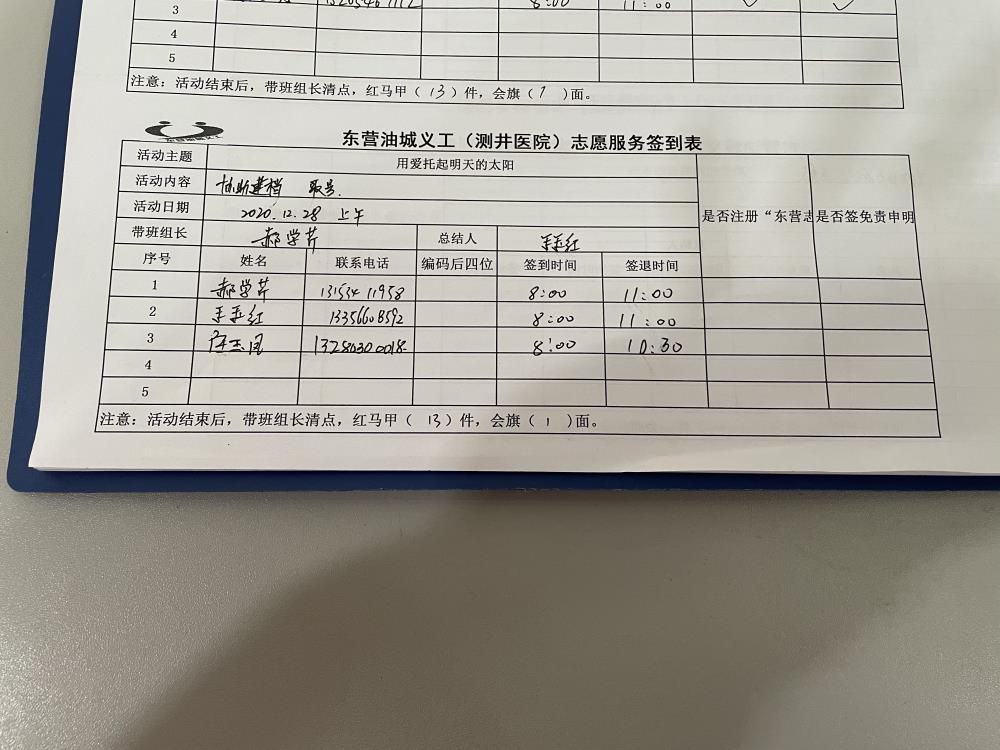 3 8:00 11:00
4
5
注意：活动结束后，带班组长清点，红马甲（13）件，会旗（1）面。
东营油城义工（测井医院）志愿服务签到表
活动主题 用爱托起明天的太阳
活动内容 协助建档 取号.
活动日期 2020.12.28 上午
是否注册“东营志 是否签免责申明
带班组长 郝学芹 总结人 王玉红
序号 姓名 联系电话 编码后四位 签到时间 签退时间
1 郝学芹 13153411958 8:00 11:00
2 王玉红 13356608592 8:00 11:00
3 玉凤 13280300018 8:00 10:30
4
5
注意：活动结束后，带班组长清点，红马甲（13）件，会旗（1）面。